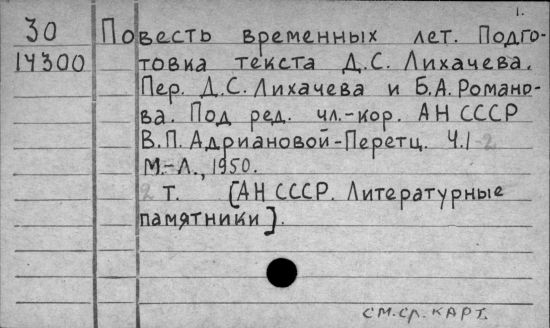 1.
30 Повесть временных лет. Подго-
14300 товка текста Д.С. Лихачева.
Пер. Д.С. Лихачева и Б.А. Романо-
ва. Под ред. чл.-кор. АН СССР
В.П. Адриановой-Перетц. Ч.1-2
М.-Л., 1950.
2 т. [АН СССР. Литературные
памятники].
см.сл.карт.